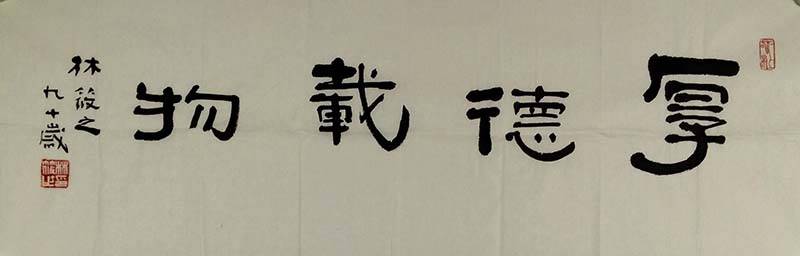 厚德載物
林筱之
九十歲